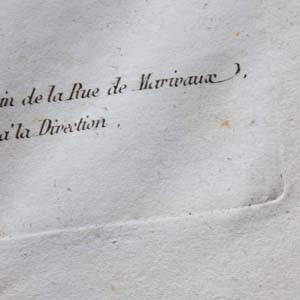 in de la Rue de Marivaux),
à la Direction.